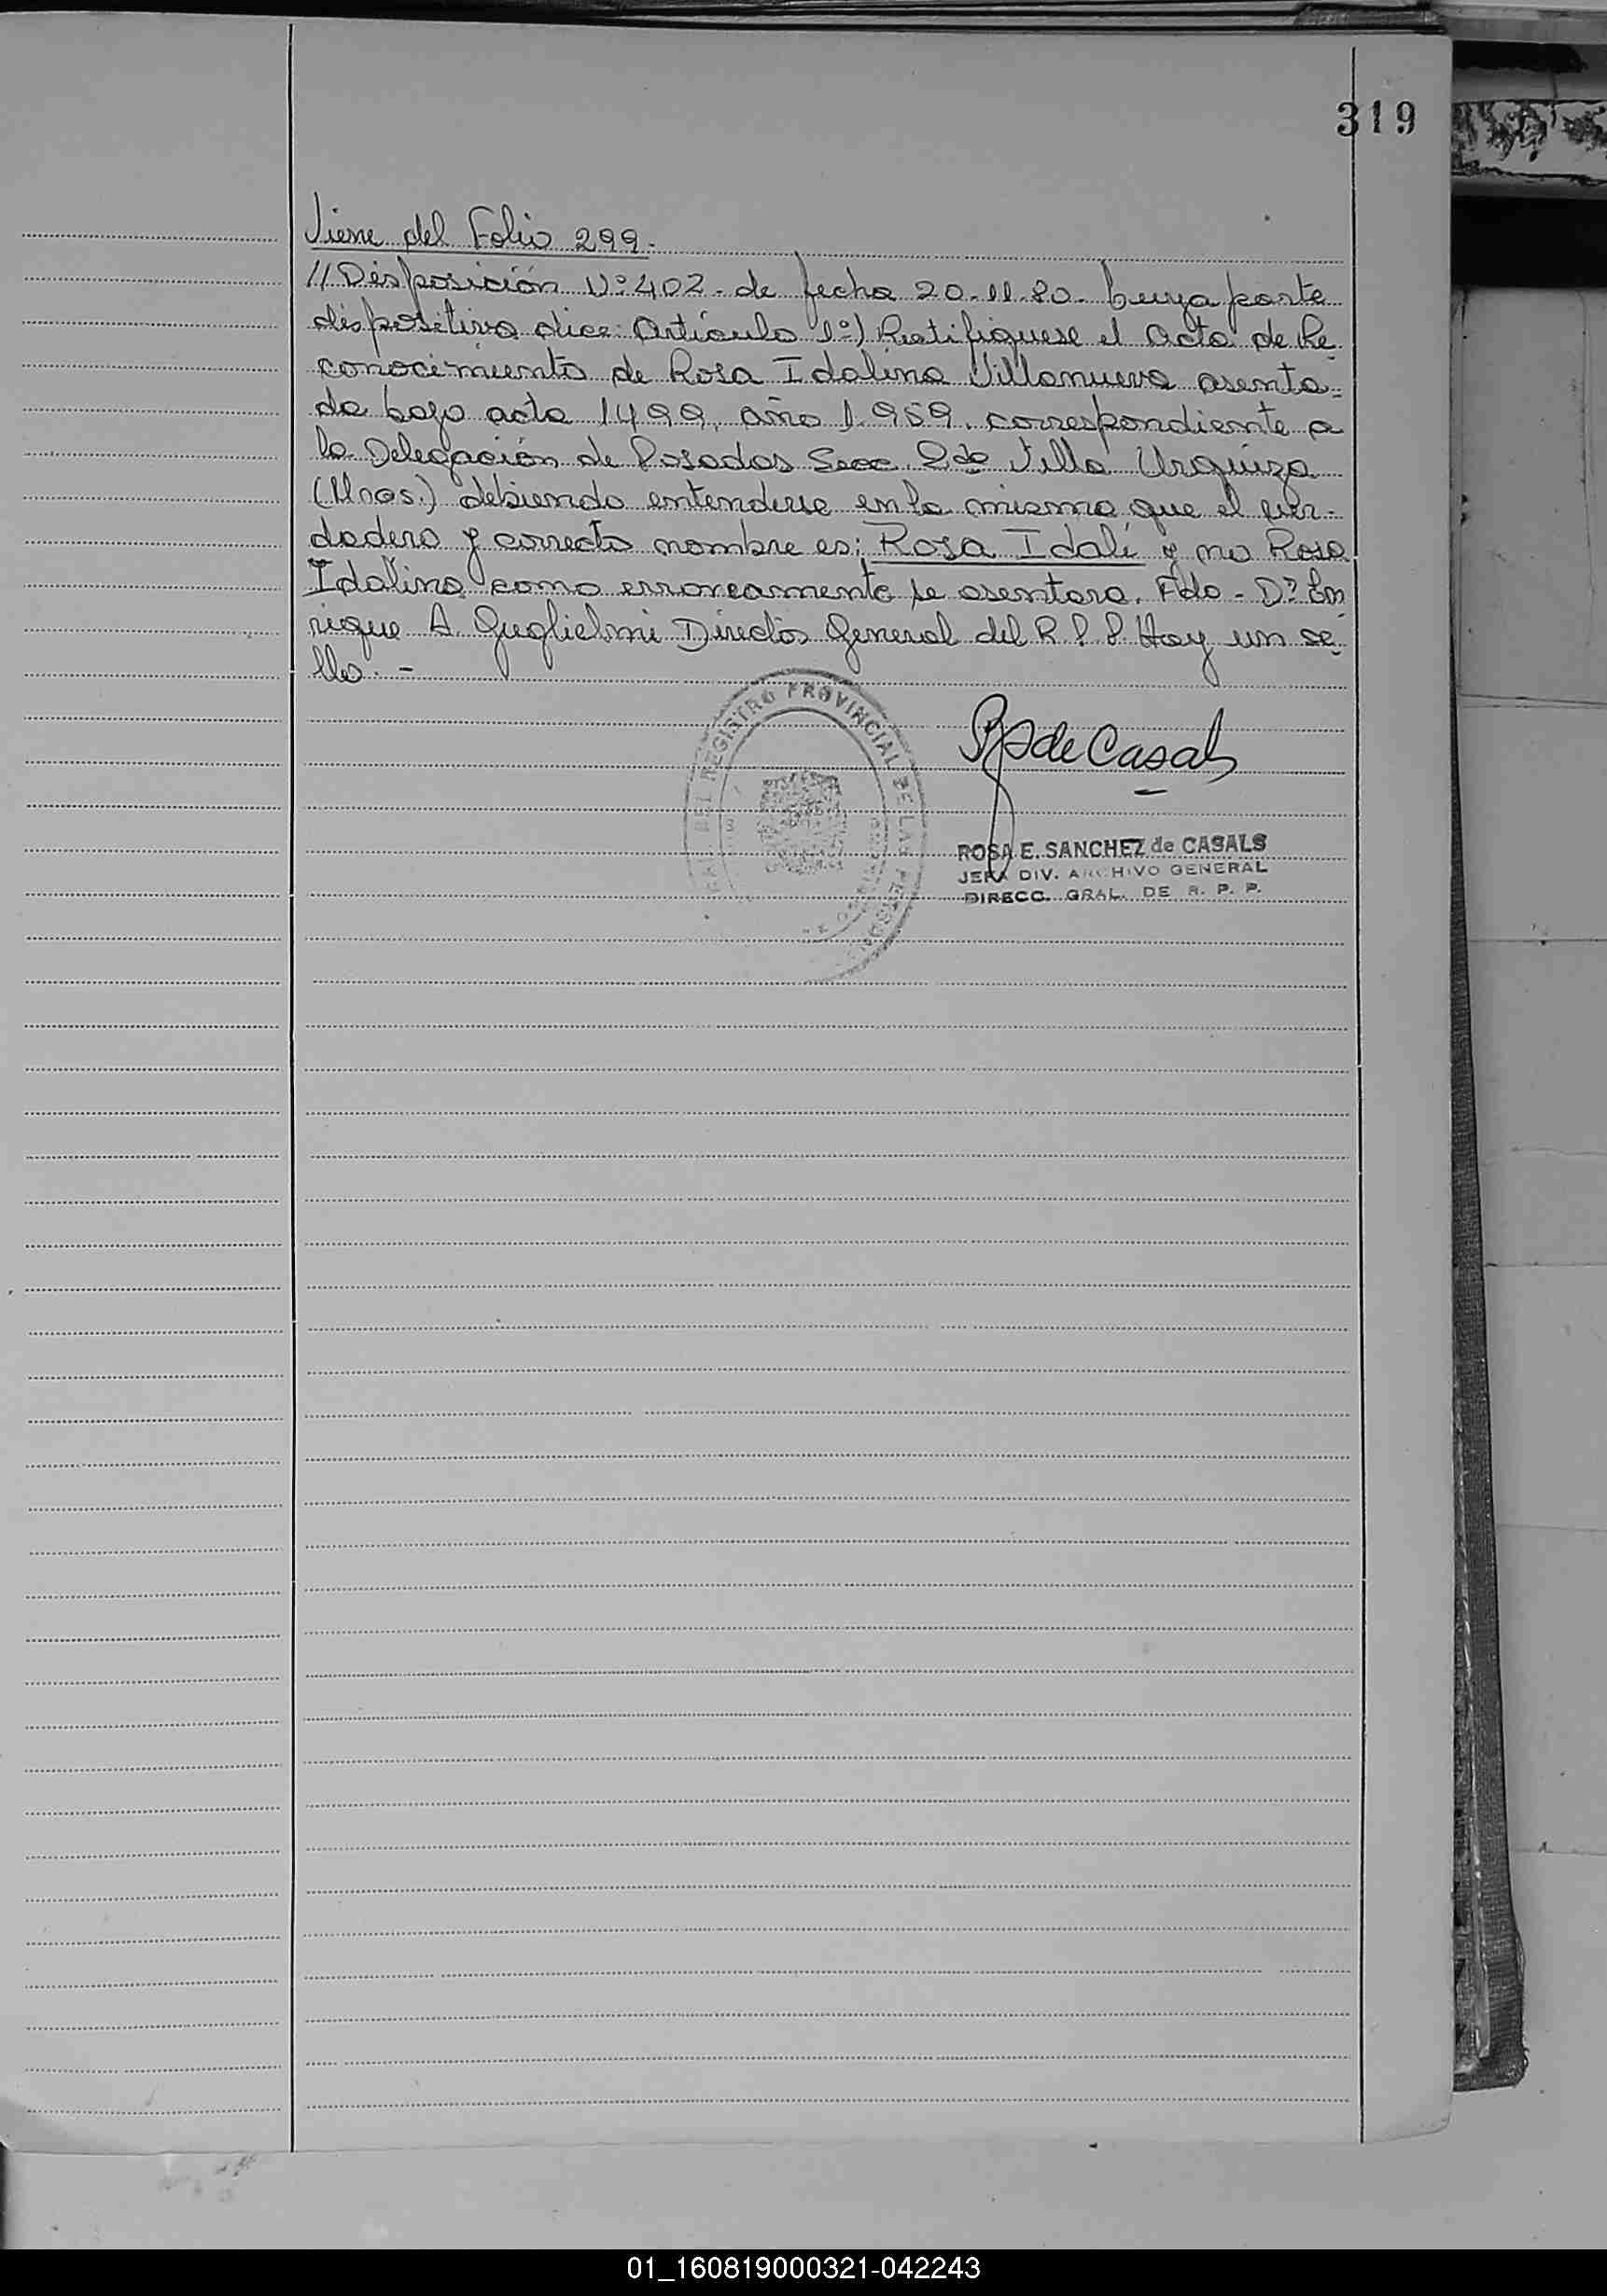 319
Viene del Folio 299.-
//Disposición Nº 402.- de fecha 20.11.80.- Cuya parte
dispositiva dice: Artículo 1º) Rectifíquese el Acta de Re
conocimiento de Rosa Idalina Villanueva asenta=
da bajo acta 1499, año 1.959. correspondiente a
la Delegación de Posadas Secc. 2da Villa Urquiza
(Mnes.) debiendo entenderse en la misma que el ver-
dadero y correcto nombre es: Rosa Idalí y no Rosa
Idalina como erroneamente se asentara. Fdo - Dº En
rique A. Guglielmi Director General del R.P.P. Hay un se
llo.-
DEL REGISTRO PROVINCIAL DE LAS
de Casals
ROSA E. SANCHEZ de CASALS
JEFA DIV. ARCHIVO GENERAL
DIRECC. GRAL. DE R. P. P.
01_160819000321-042243